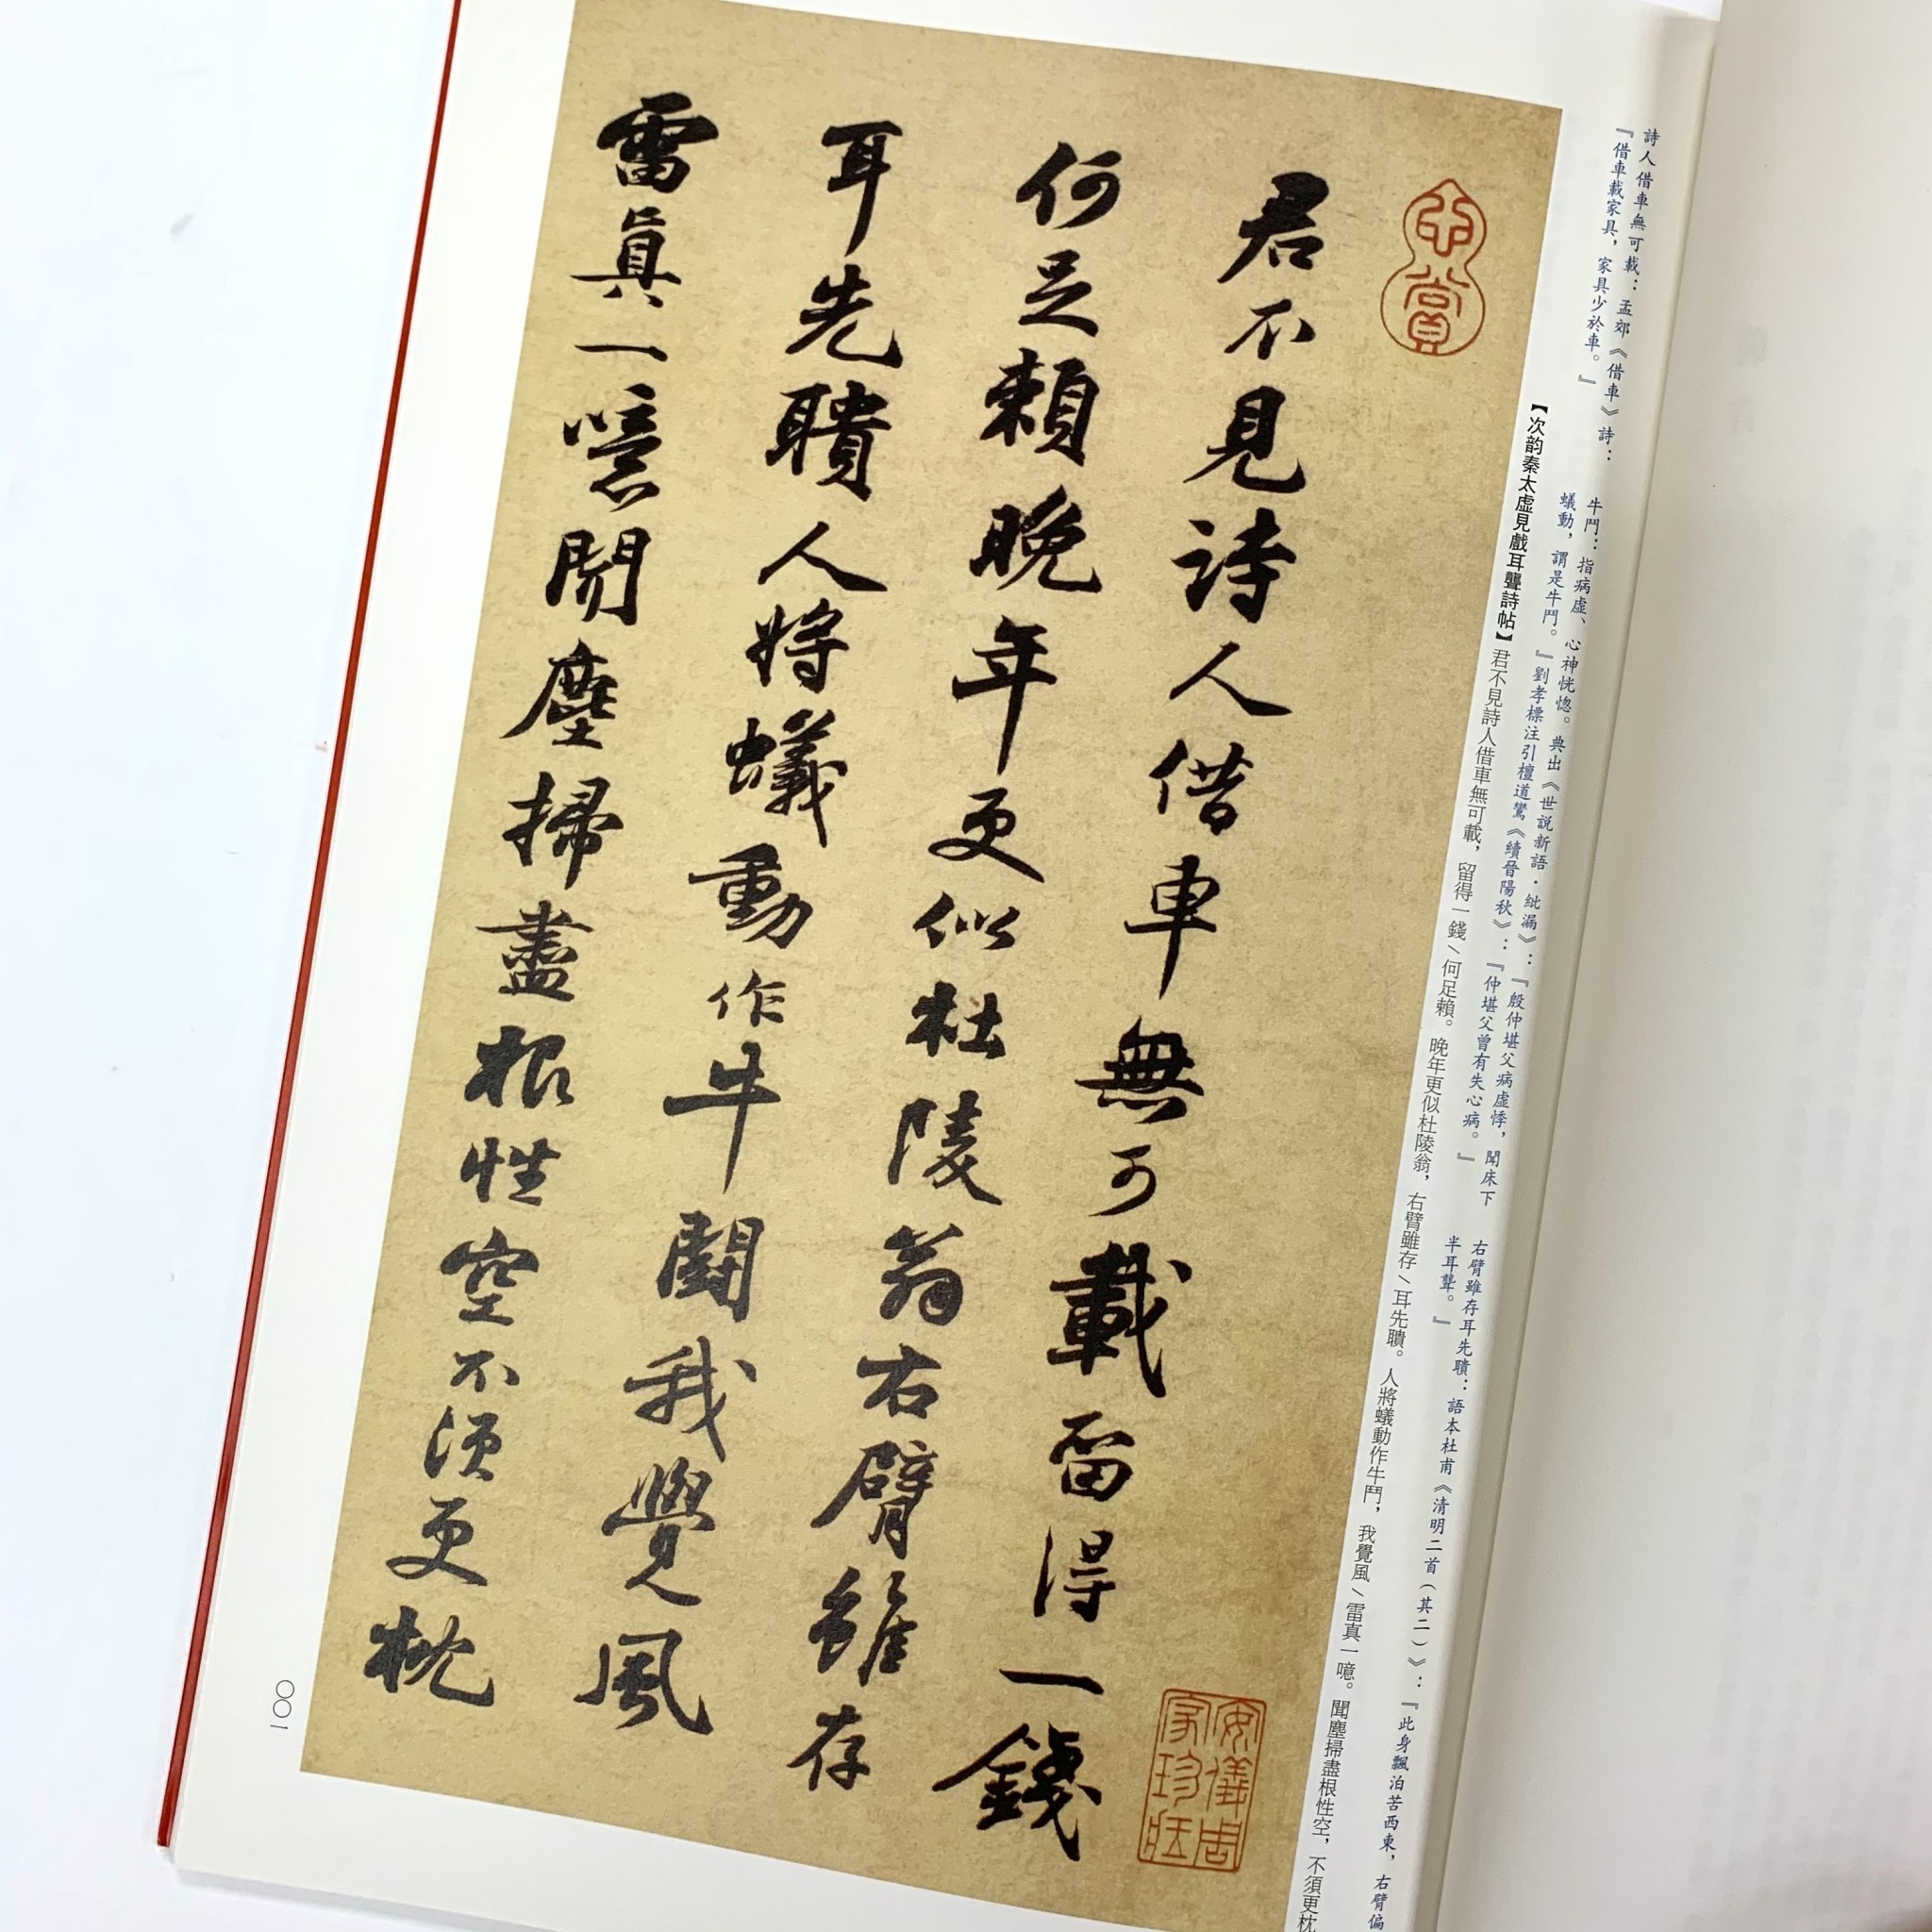 詩人借車無可載：孟郊《借車》詩：
『借車載家具，家具少於車。』
牛鬥：指病虛、心神恍惚。典出《世説新語·紕漏》：『殷仲堪父病虛悸，聞床下
蟻動，謂是牛鬥。』劉孝標注引檀道鸞《續晉陽秋》：『仲堪父曾有失心病。』
右臂雖存耳先聵：語本杜甫《清明二首（其二）》：『此身飄泊苦西東，右臂偏
半耳聾。』
【次韵秦太虛見戲耳聾詩帖】君不見詩人借車無可載，留得一錢\何足賴。晚年更似杜陵翁，右臂雖存\耳先聵。人將蟻動作牛鬥，我覺風\雷真一噫。聞塵掃盡根性空，不須更枕
賞
君不見詩人借車無可載留得一錢
何足賴晚年更似杜陵翁右臂雖存
耳先聵人將蟻動作牛鬭我覺風
雷真一噫聞塵掃盡根性空不須更枕
安儀周
家珍藏
〇〇一